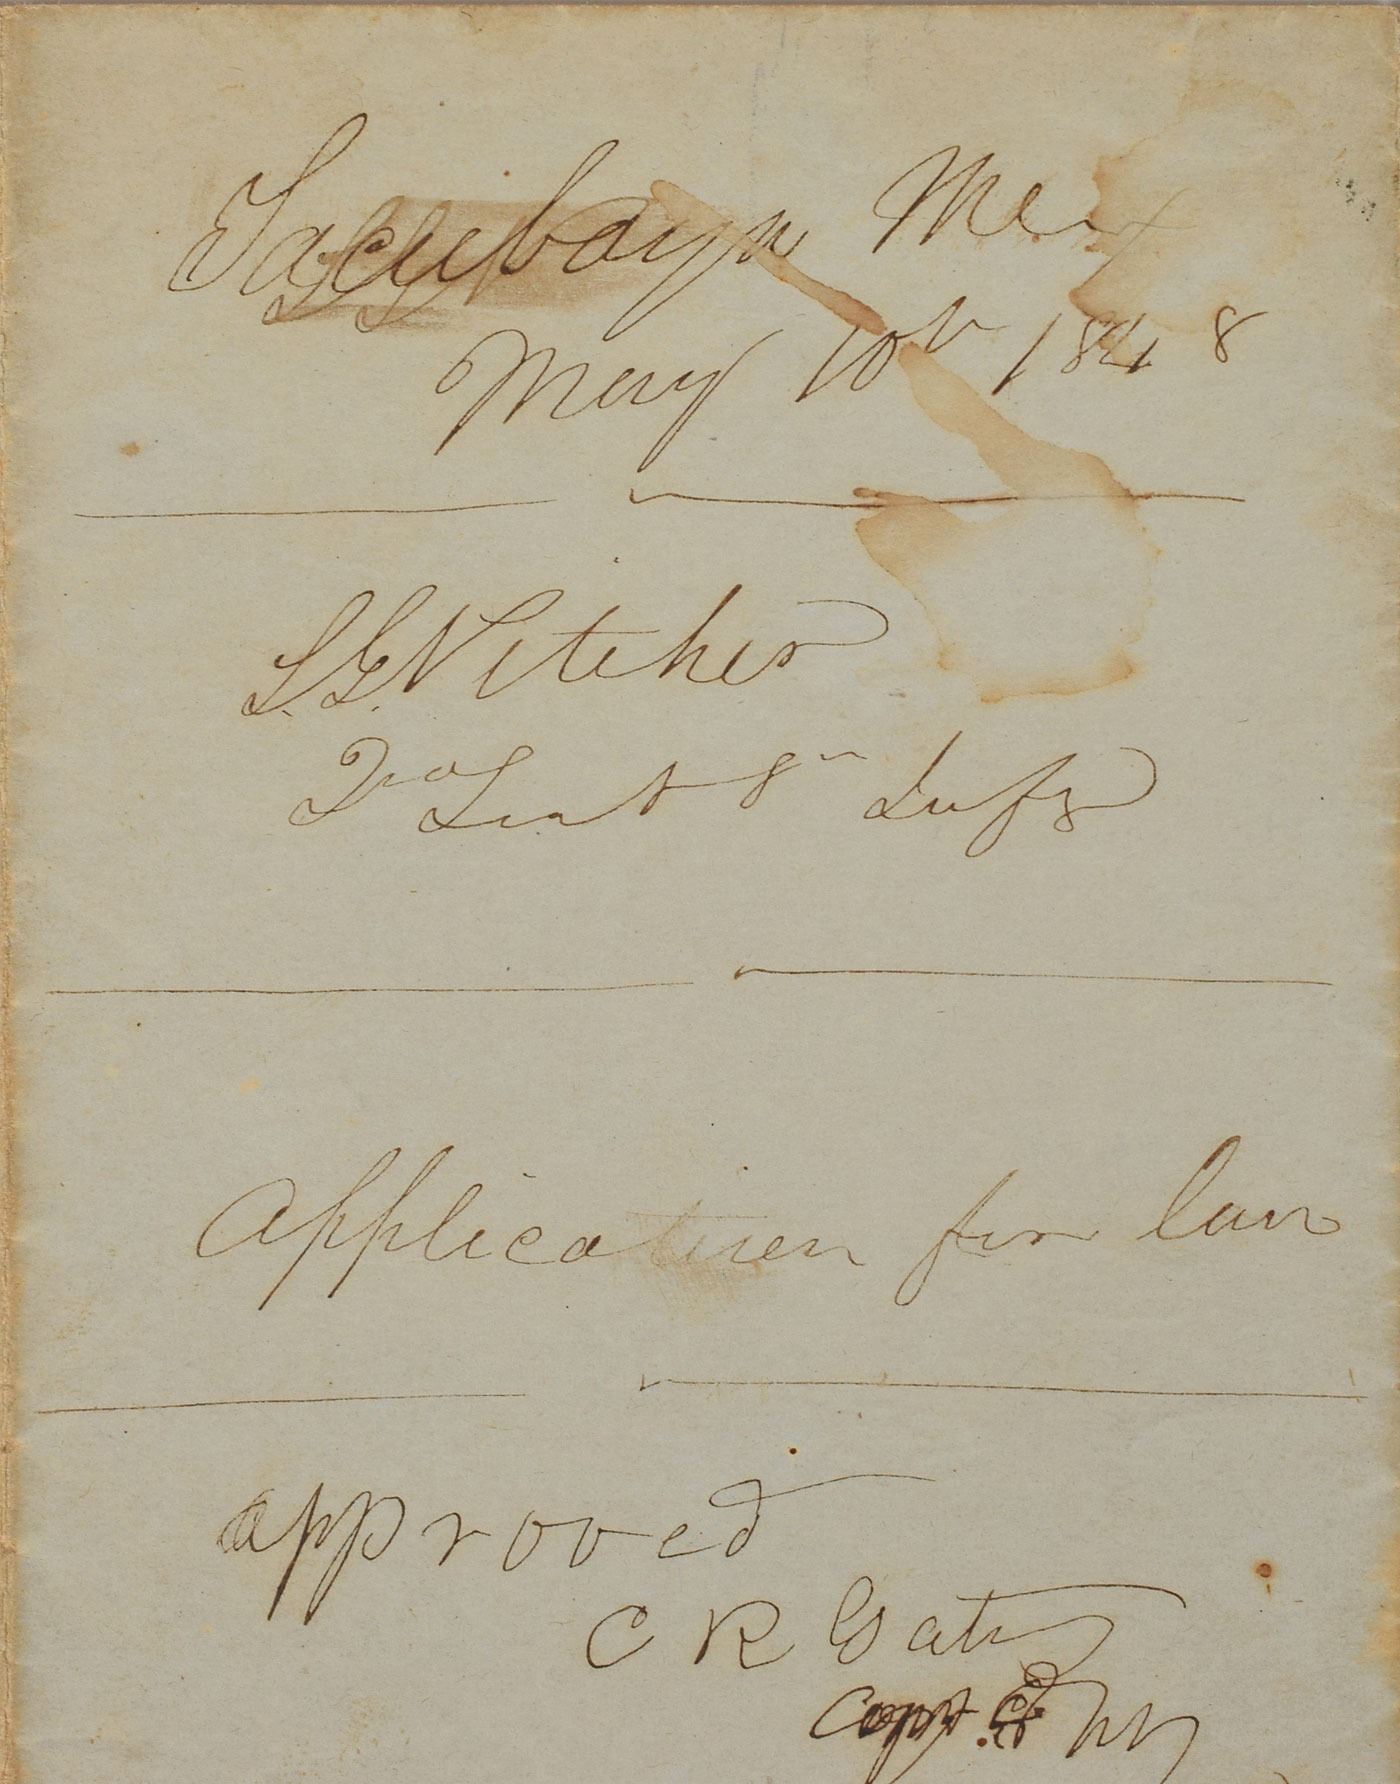 Tacubaya Mex
May 10th 1848
S. G. Pitcher
2nd Lieut 8th Infy
Application for leave
approved
C R Gates
Capt. 8 Infy